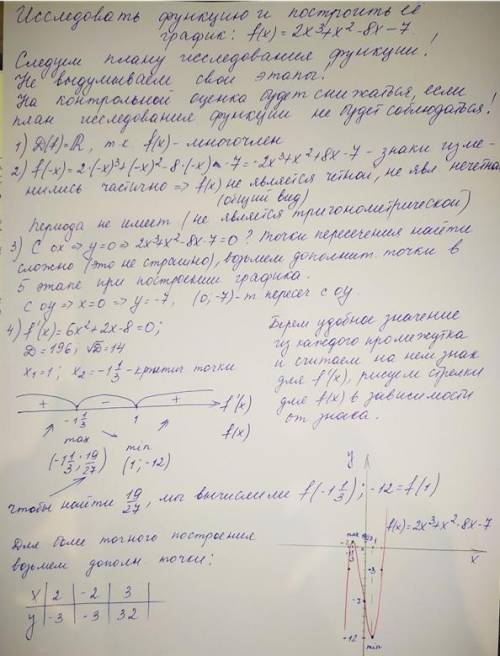 Исследовать функцию и построить её
график: f(x) = 2x³+x²-8x-7.
Следуем плану исследования функции!
Не выдумываем свои этапы!
На контрольной оценка будет снижаться, если
план исследования функции не будет соблюдаться!
1) D(f)=ℝ, т.к. f(x)- многочлен
2) f(-x) = 2·(-x)³+(-x)²-8·(-x)-7 = -2x³+x²+8x-7 - знаки изме-
нились частично => f(x) не является чётной, не явл. нечетной
(общий вид)
Периода не имеет (не является тригонометрической)
3) С ox => y=0 => 2x³+x²-8x-7=0? Точки пересечения найти
сложно (это не страшно), возьмем дополнит. точки в
5 этапе при построении графика.
С oy => x=0 => y=-7, (0;-7)-т. пересеч с oy.
4) f'(x) = 6x²+2x-8=0;
D=196; √D=14
x₁=1; x₂=-1 1/3 - критич точки
Берем удобное значение
из каждого промежутка
и считаем на нем знак
для f'(x), рисуем стрелки
для f(x) в зависимости
от знака.
+ - + f'(x)
-1 1/3 1 f(x)
max min
(-1 1/3; 19/27) (1;-12)
Чтобы найти 19/27, мы вычислили f(-1 1/3); -12=f(1)
Для более точного построения
возьмем дополн. точки:
x 2 -2 3
y -3 -3 32
y
f(x)=2x³+x²-8x-7
max
x
-3
-12
min